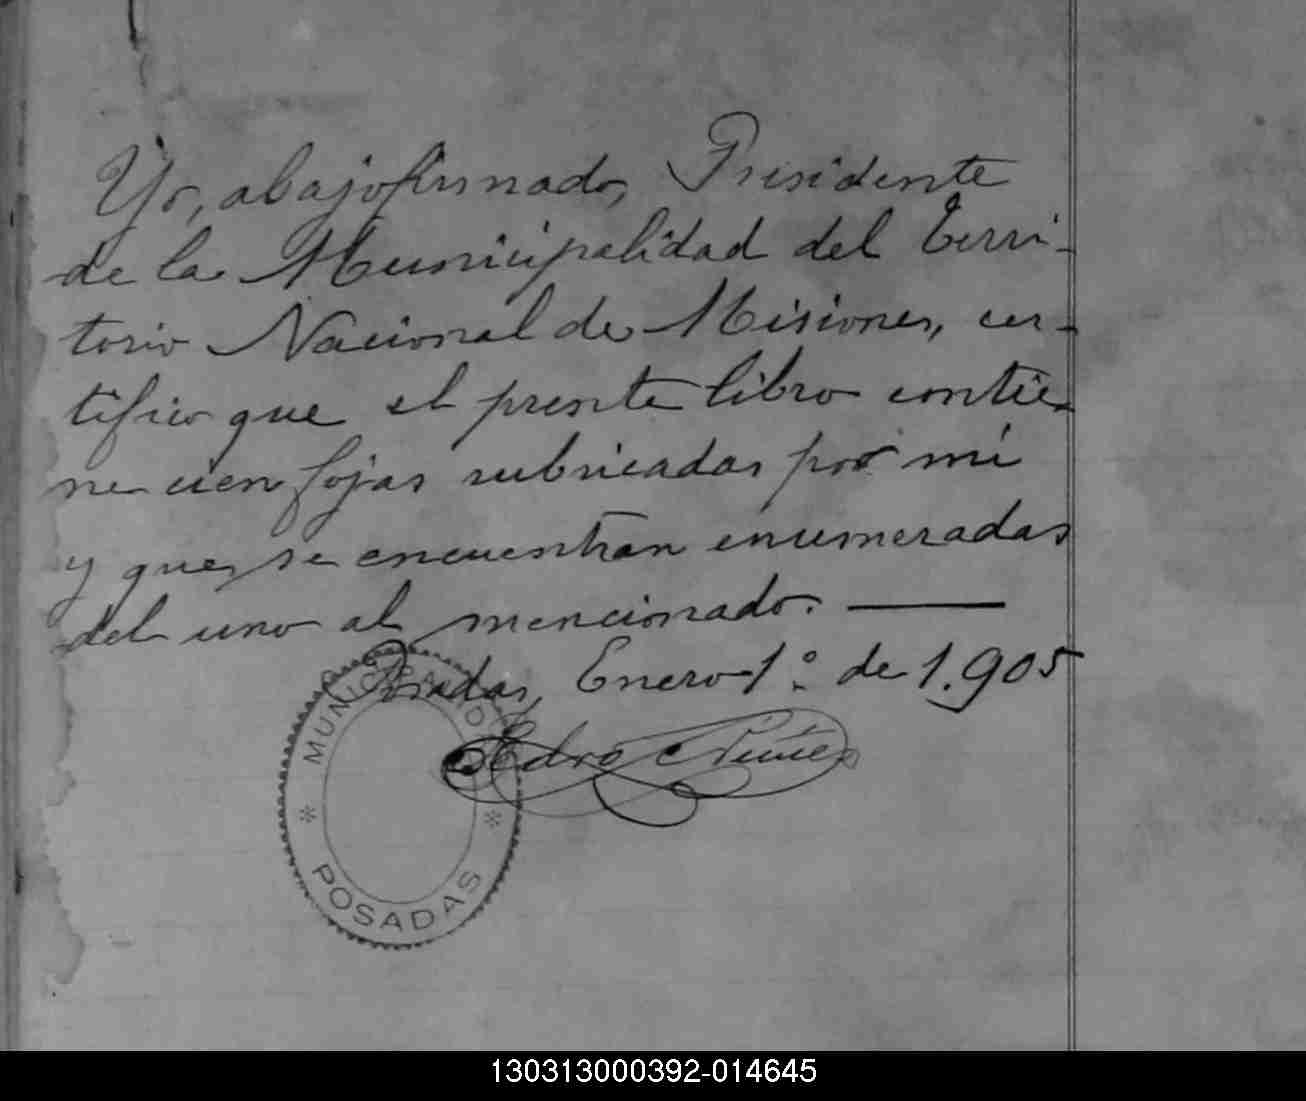 Yo, abajo firmado, Presidente
de la Municipalidad del Terri-
torio Nacional de Misiones, cer-
tifico que el presente libro contie-
ne cien fojas rubricadas por mi
y que, se encuentran enumeradas
del uno al mencionado.
Posadas, Enero 1º de 1.905
Pedro
MUNICIPALIDAD
* *
POSADAS
130313000392-014645